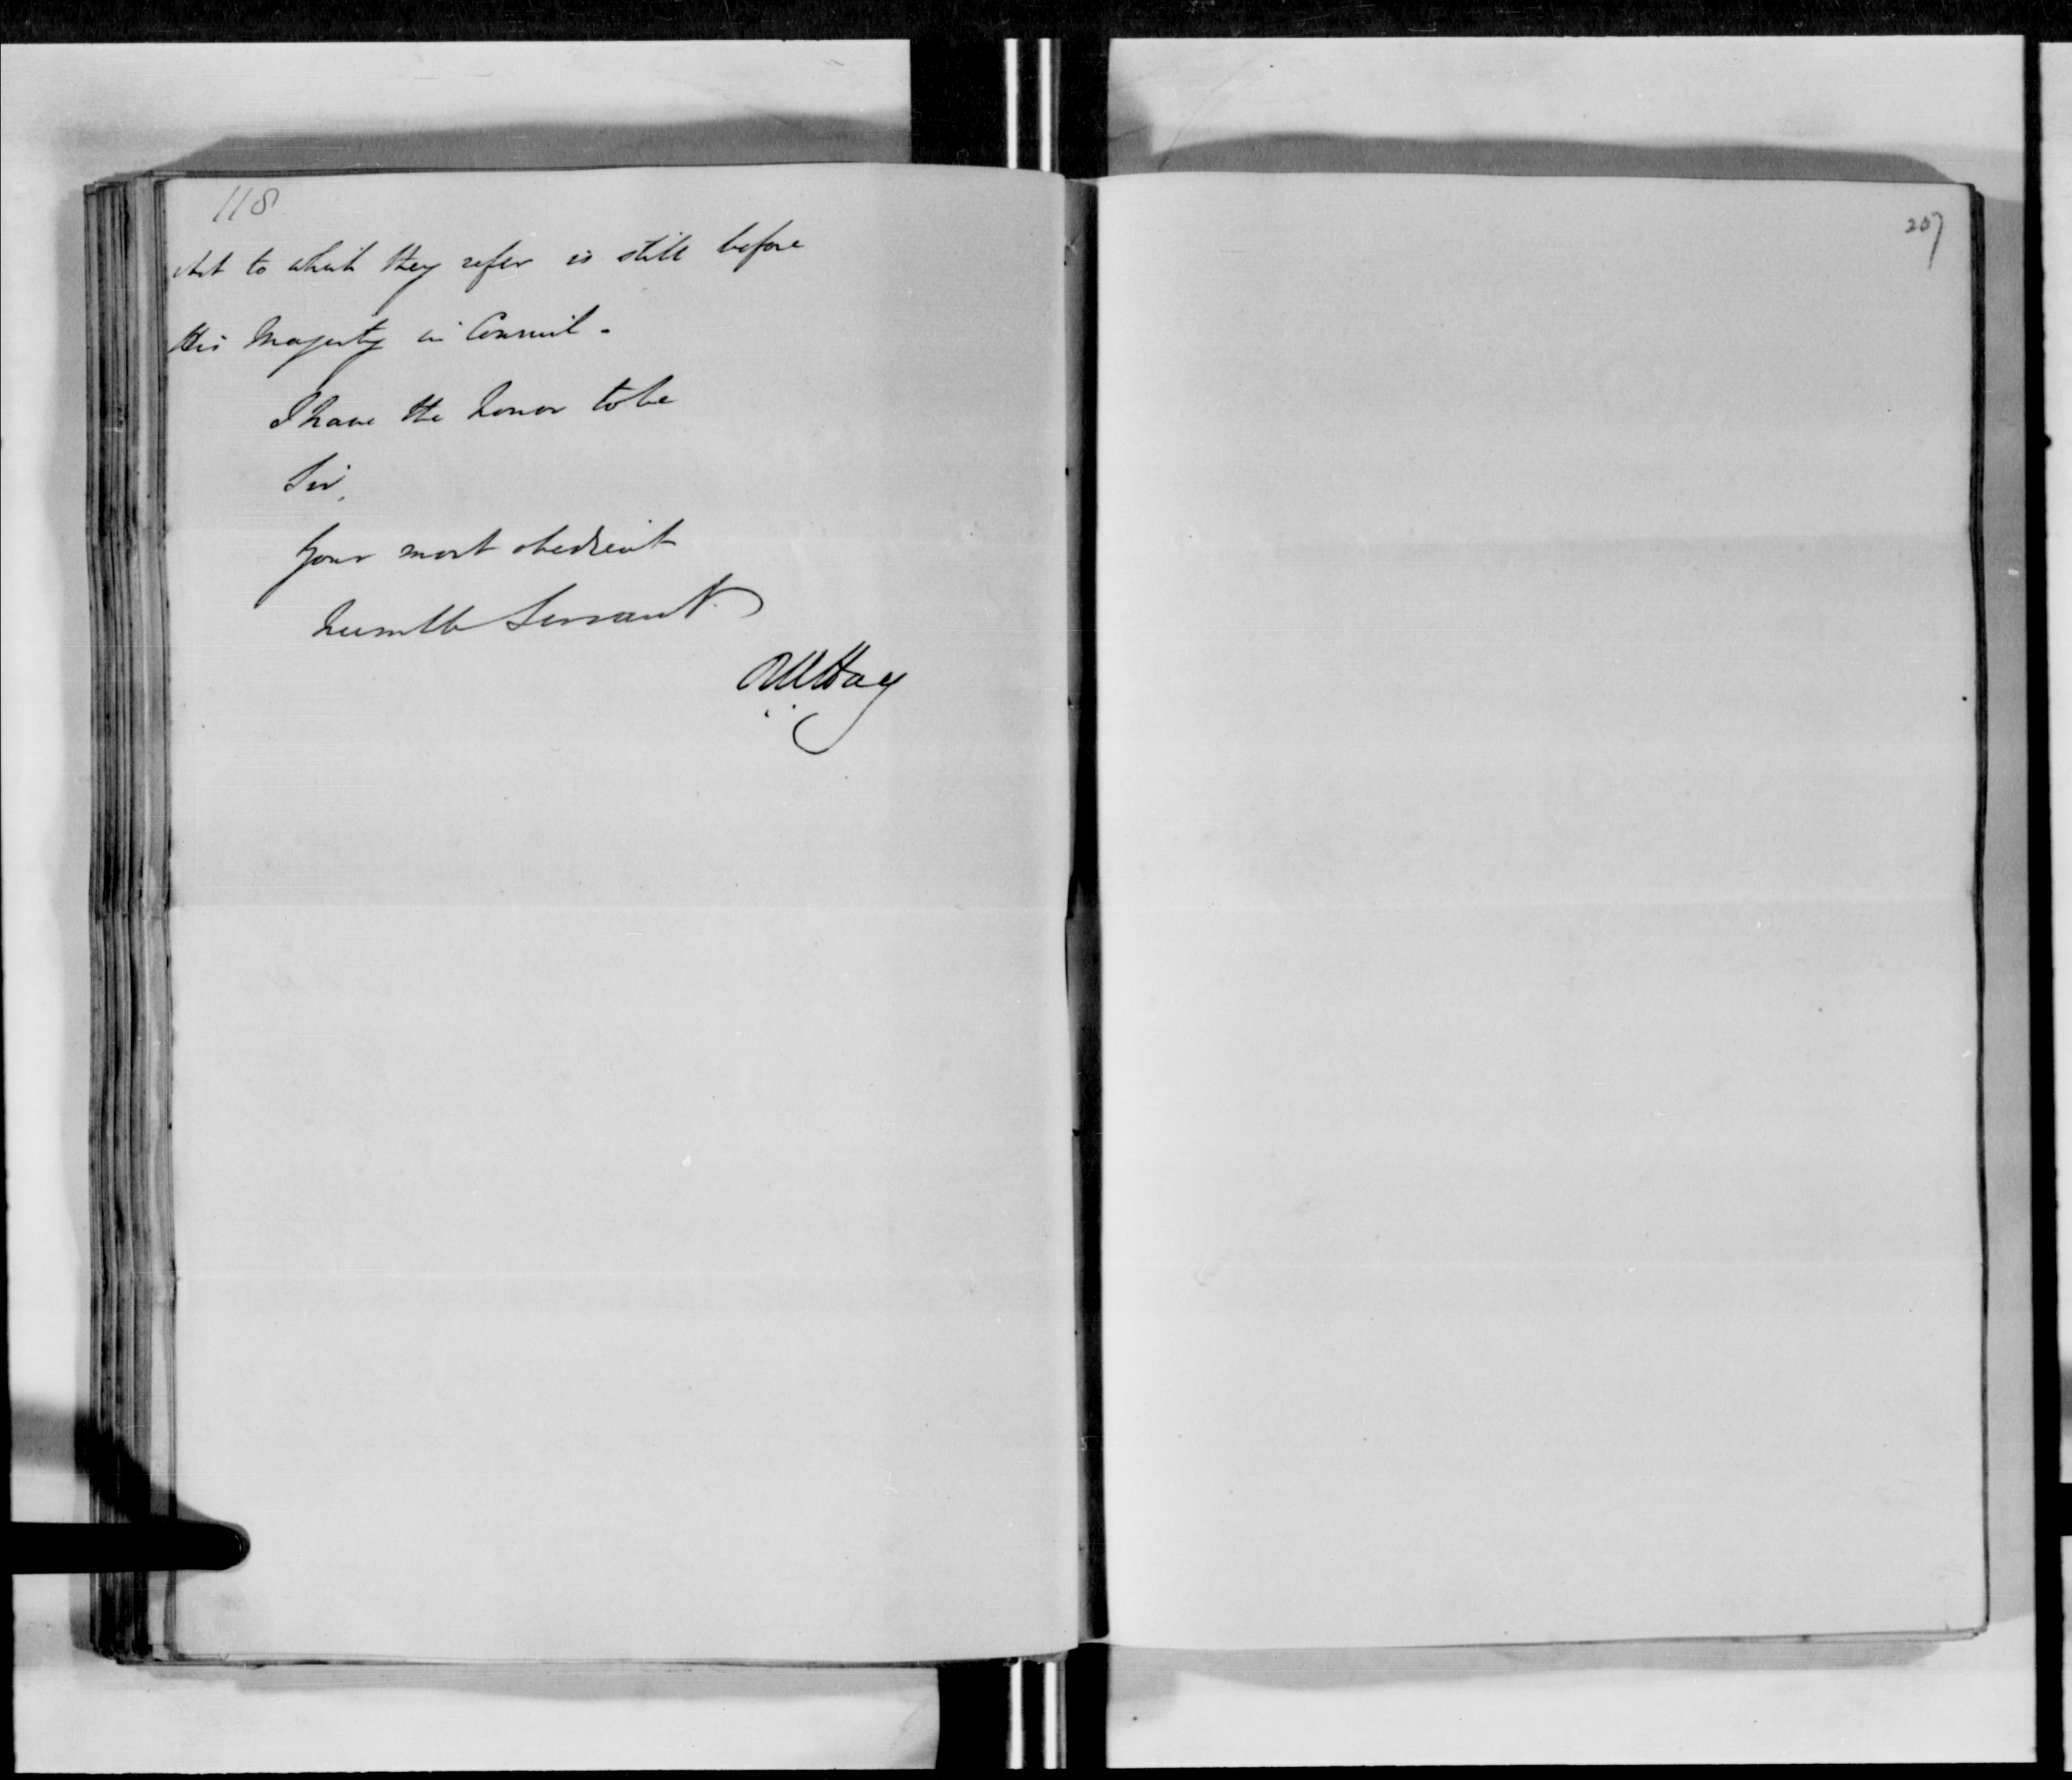 118
Act to which they refer is still before
His Majesty in Council.
I have the honor to be
Sir,
Your most obedient
humble Servant.
RWHay
207